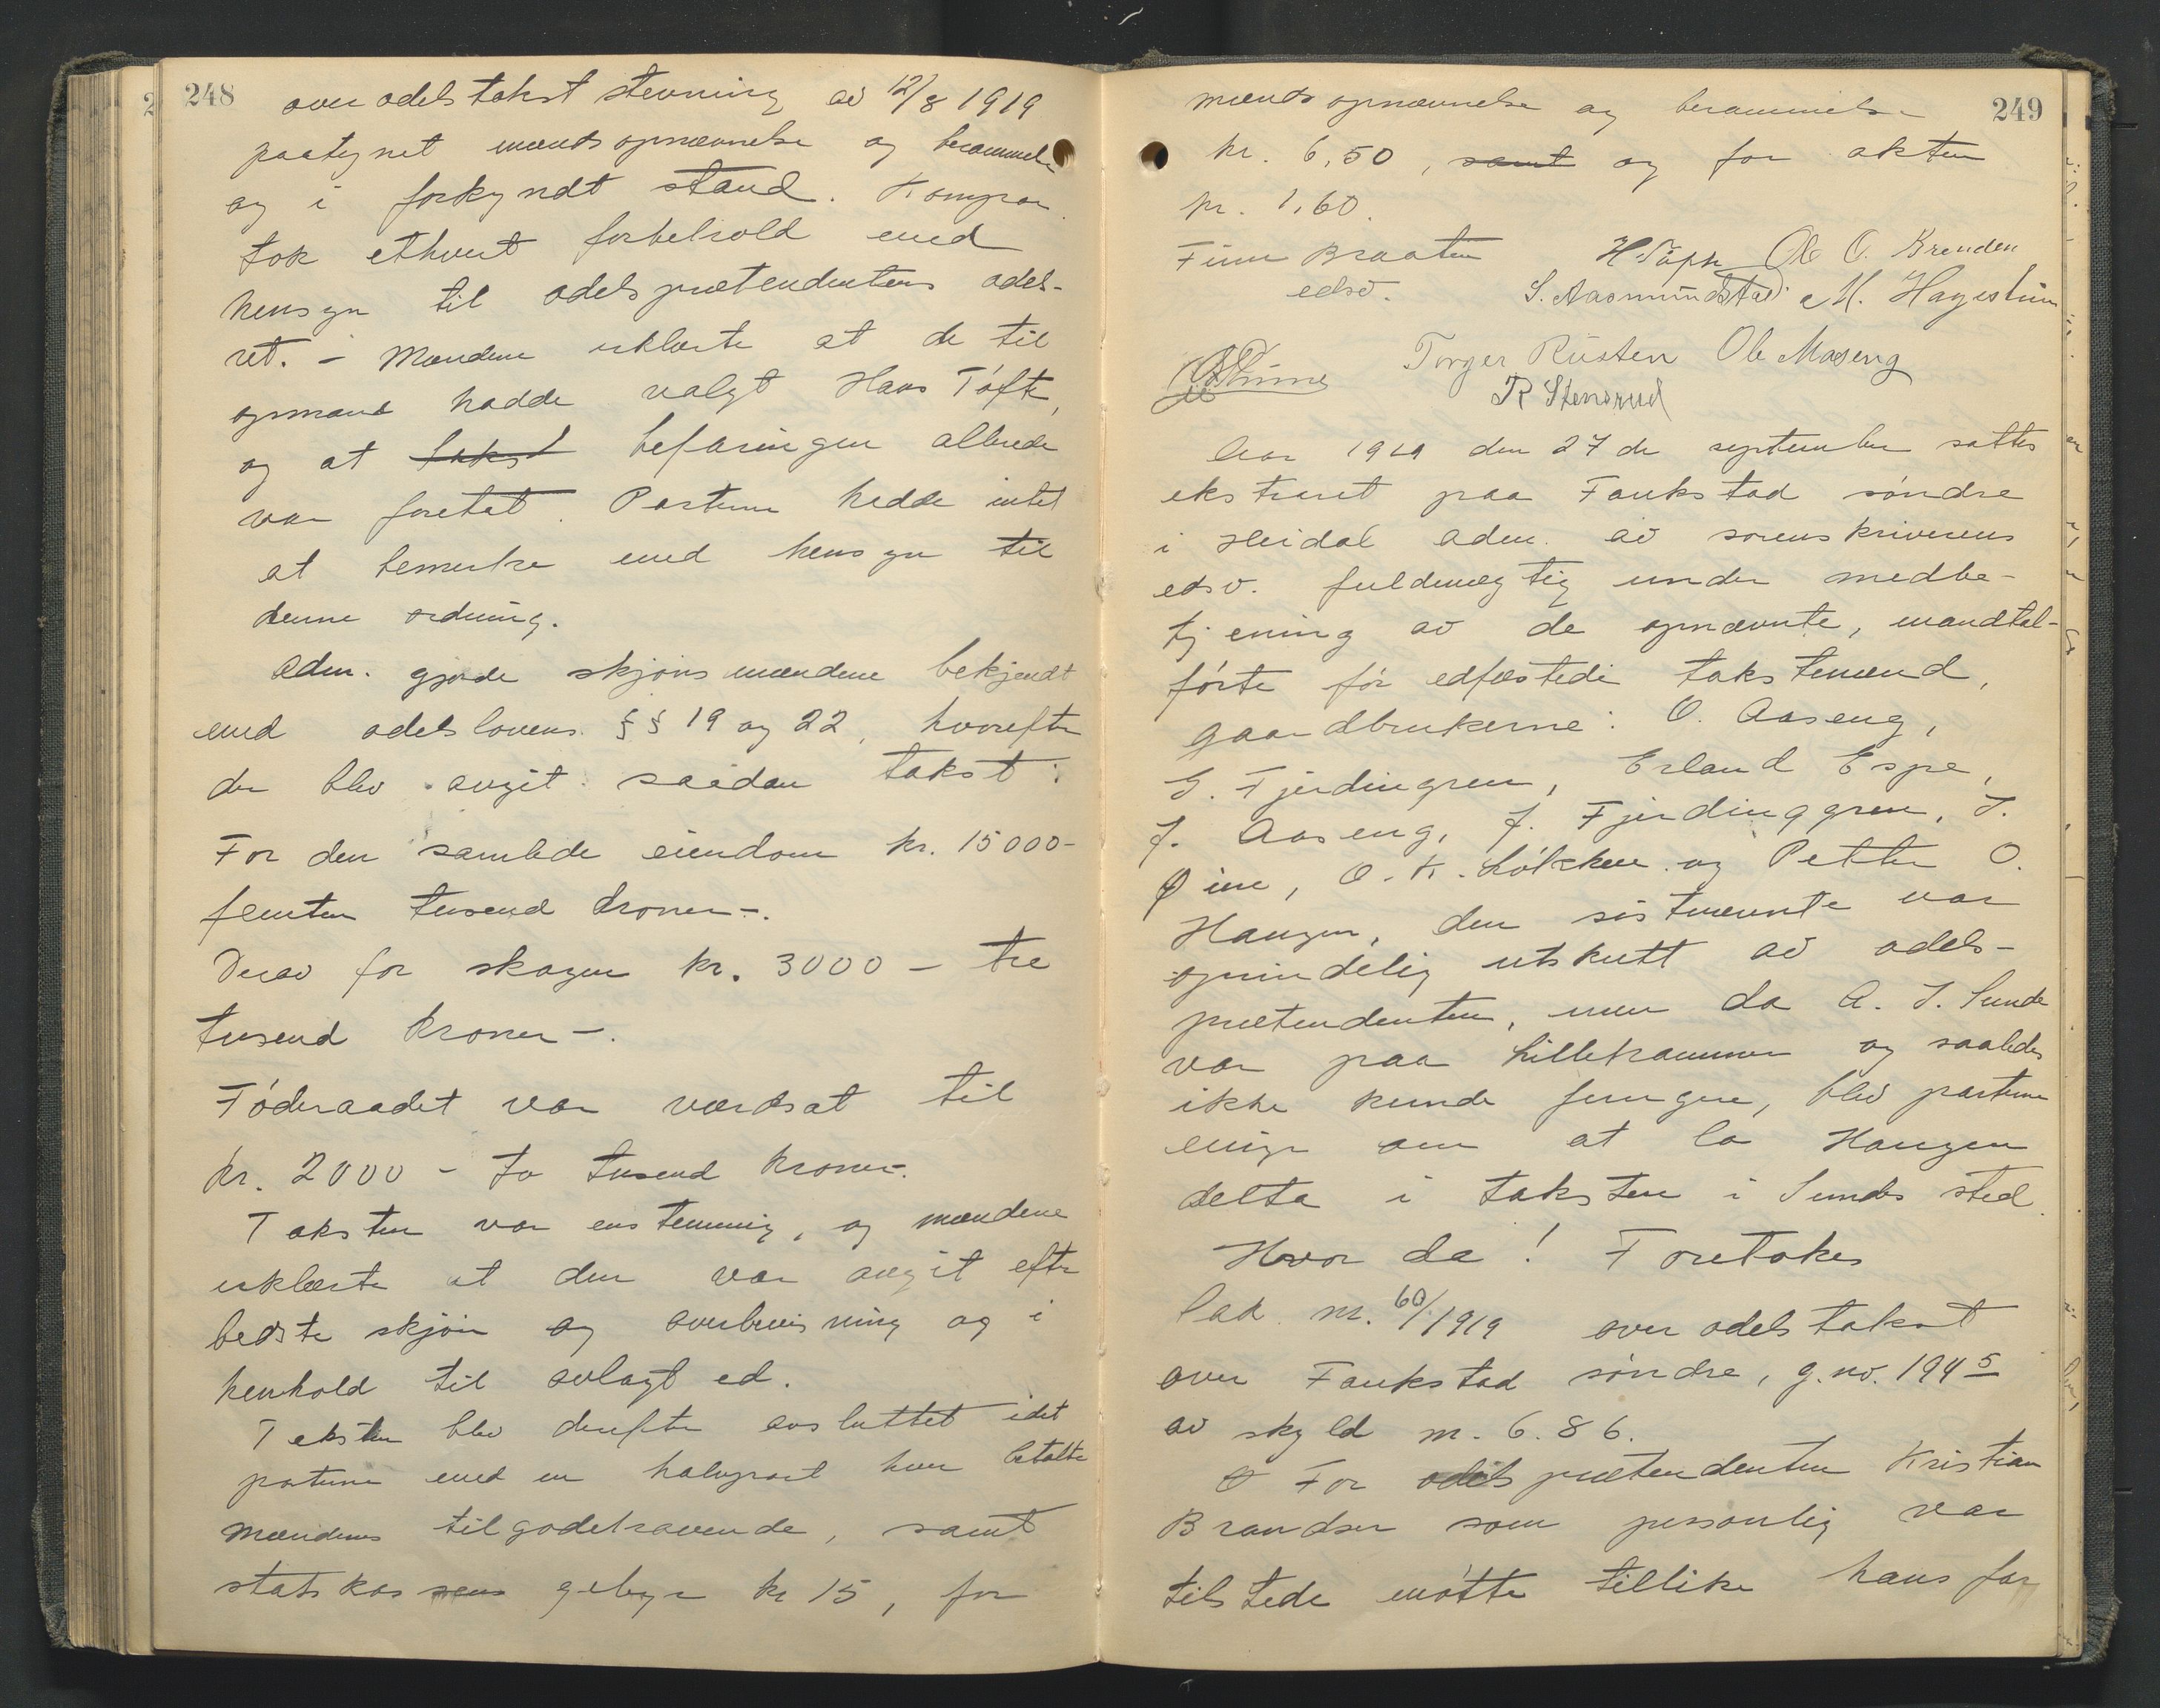 248
over odelstakst stevning av 12/8 1919
paategnet mændsopnævnelse og berammelse
og i forkyndt stand. Kompar.
tok ethvert forbehold med
hensyn til odelsprætendentens odels-
ret. - Mændene erklærte at de til
opmand hadde valgt Hans Tofte,
og at takst befaringen allerede
var foretat. Parterne hadde intet
at bemerke med hensyn til
denne ordning.
Adm. gjorde skjønsmændene bekjendt
med odelslovens §§ 19 og 22, hvorefter
der blev avgit saadan takst:
For den samlede eiendom kr. 15000-
femten tusend kroner-.
Derav for skogen kr. 3000 - tre
tusend kroner-.
Föderaadet var værdsat til
kr. 2000 - to tusend kroner-.
Taksten var enstemmig, og mændene
erklærte at den var avgit efter
bedste skjön og overbevisning og i
henhold til avlagt ed.
Taksten blev derefter avsluttet idet
parterne med en halvpart hver betalte
mændenes tilgodehavende, samt
statskassens gebyr kr 15, for
249
mændsopnævnelse og berammelse
kr. 6,50, samt og for akten
kr. 1,60.
Finn Braaten
edsv.
Ole O. Brenden
S. Aasmundstad M. Hagestuen
Torger Rusten Ole Moseng
R Stensrud
Aar 1919 den 27de september sattes
ekstraret paa Faukstad søndre
i Heidal adm. av sorenskriverens
edsv. fuldmægtig under medbe-
tjening av de opnævnte, mandtal-
førte før edfæstede takstmænd,
gaardbrukerne: O. Aaseng,
G. Fjerdingren, Erland Espe,
J. Aaseng, J. Fjerdinggren, J.
Öine, O. K. Løkken og Petter O.
Haugen, den sistnævnte var
oprindelig utskutt av odels-
prætendenten, men da A. J. Sunde
var paa Lillehammer og saaledes
ikke kunde fungere, blev parterne
enige om at la Haugen
delta i taksten i Sundes sted.
Hvor da! Foretokes
Sak nr. 60/1919 over odelstakst
over Faukstad søndre, g. no. 194 5
av skyld m. 6.86.
For odelsprætendenten Kristian
Brandser som personlig var
tilstede møtte tillike hans far